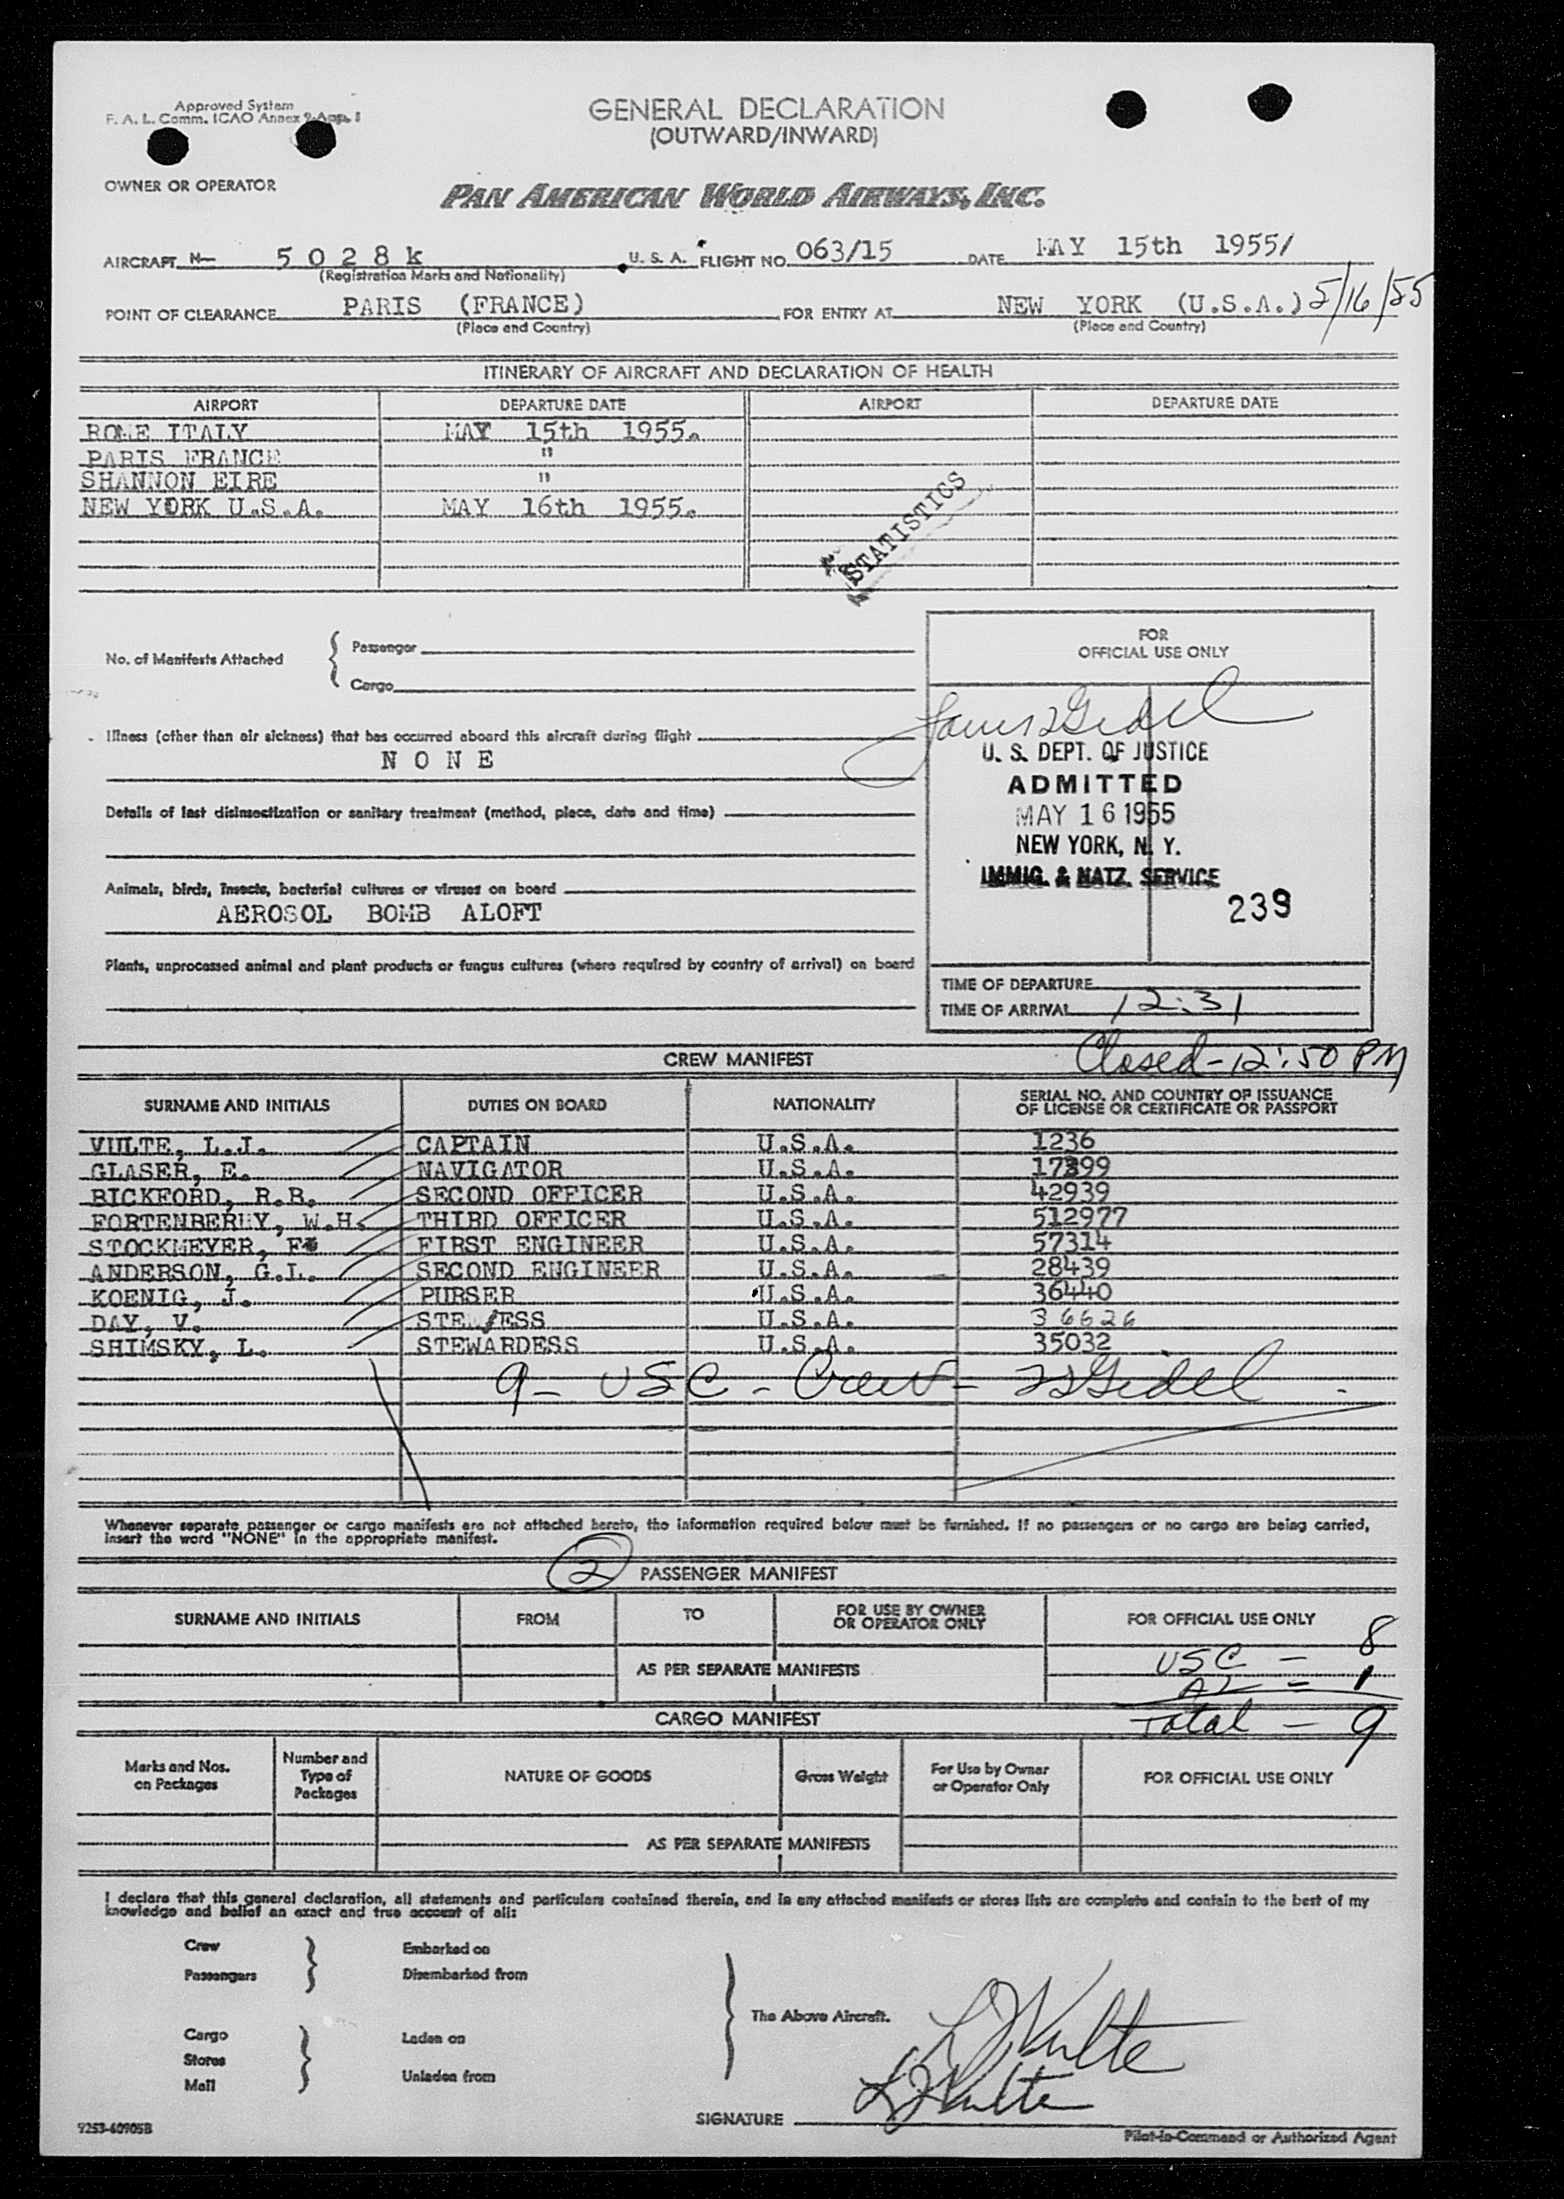 Approved System
F. A. L. Comm. ICAO Annex 9-App. 1
GENERAL DECLARATION
(OUTWARD/INWARD)
OWNER OR OPERATOR
PAN AMERICAN WORLD AIRWAYS, INC.
AIRCRAFT N- 5 0 2 8 k U. S. A. FLIGHT NO. 063/15 DATE MAY 15th 1955/
(Registration Marks and Nationality)
POINT OF CLEARANCE PARIS (FRANCE) FOR ENTRY AT NEW YORK (U.S.A.) 5/16/55
(Place and Country) (Place and Country)
ITINERARY OF AIRCRAFT AND DECLARATION OF HEALTH
AIRPORT DEPARTURE DATE AIRPORT DEPARTURE DATE
ROME ITALY MAY 15th 1955.
PARIS FRANCE "
SHANNON EIRE "
NEW YORK U.S.A. MAY 16th 1955.
STATISTICS
No. of Manifests Attached { Passenger
Cargo
FOR
OFFICIAL USE ONLY
Illness (other than air sickness) that has occurred aboard this aircraft during flight
N O N E
U. S. DEPT. OF JUSTICE
ADMITTED
MAY 16 1955
NEW YORK, N. Y.
IMMIG. & NATZ. SERVICE
239
Details of last disinsectization or sanitary treatment (method, place, date and time)
Animals, birds, insects, bacterial cultures or viruses on board
AEROSOL BOMB ALOFT
Plants, unprocessed animal and plant products or fungus cultures (where required by country of arrival) on board
TIME OF DEPARTURE
TIME OF ARRIVAL 12:31
Closed-12:50 PM
CREW MANIFEST
SURNAME AND INITIALS DUTIES ON BOARD NATIONALITY SERIAL NO. AND COUNTRY OF ISSUANCE
OF LICENSE OR CERTIFICATE OR PASSPORT
VULTE, L.J. CAPTAIN U.S.A. 1236
GLASER, E. NAVIGATOR U.S.A. 17399
BICKFORD, R.B. SECOND OFFICER U.S.A. 42939
FORTENBERRY, W.H. THIRD OFFICER U.S.A. 512977
STOCKMEYER, F. FIRST ENGINEER U.S.A. 57314
ANDERSON, G.L. SECOND ENGINEER U.S.A. 28439
KOENIG, J. PURSER U.S.A. 36440
DAY, V. STEW/ESS U.S.A. 36626
SHIMSKY, L. STEWARDESS U.S.A. 35032
9 - USC - Crew -
Whenever separate passenger or cargo manifests are not attached hereto, the information required below must be furnished. If no passengers or no cargo are being carried,
insert the word "NONE" in the appropriate manifest.
2 PASSENGER MANIFEST
SURNAME AND INITIALS FROM TO FOR USE BY OWNER
OR OPERATOR ONLY FOR OFFICIAL USE ONLY
USC - 8
AS PER SEPARATE MANIFESTS
AL = 1
CARGO MANIFEST
Total - 9
Marks and Nos.
on Packages Number and
Type of
Packages NATURE OF GOODS Gross Weight For Use by Owner
or Operator Only FOR OFFICIAL USE ONLY
AS PER SEPARATE MANIFESTS
I declare that this general declaration, all statements and particulars contained therein, and in any attached manifests or stores lists are complete and contain to the best of my
knowledge and belief an exact and true account of all:
Crew Embarked on
Passengers Disembarked from
The Above Aircraft.
Cargo Laden on
Stores
Mail Unladen from
L J Vulte
L J Vulte
SIGNATURE
9253-60905B
Pilot-in-Command or Authorized Agent